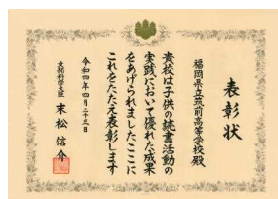 表彰状
福岡県立筑前高等学校殿
貴校は子供の読書活動の
実践において優れた成果
をあげられましたここに
これをたたえ表彰します
令和四年四月二十三日
文部科学大臣 末松信介